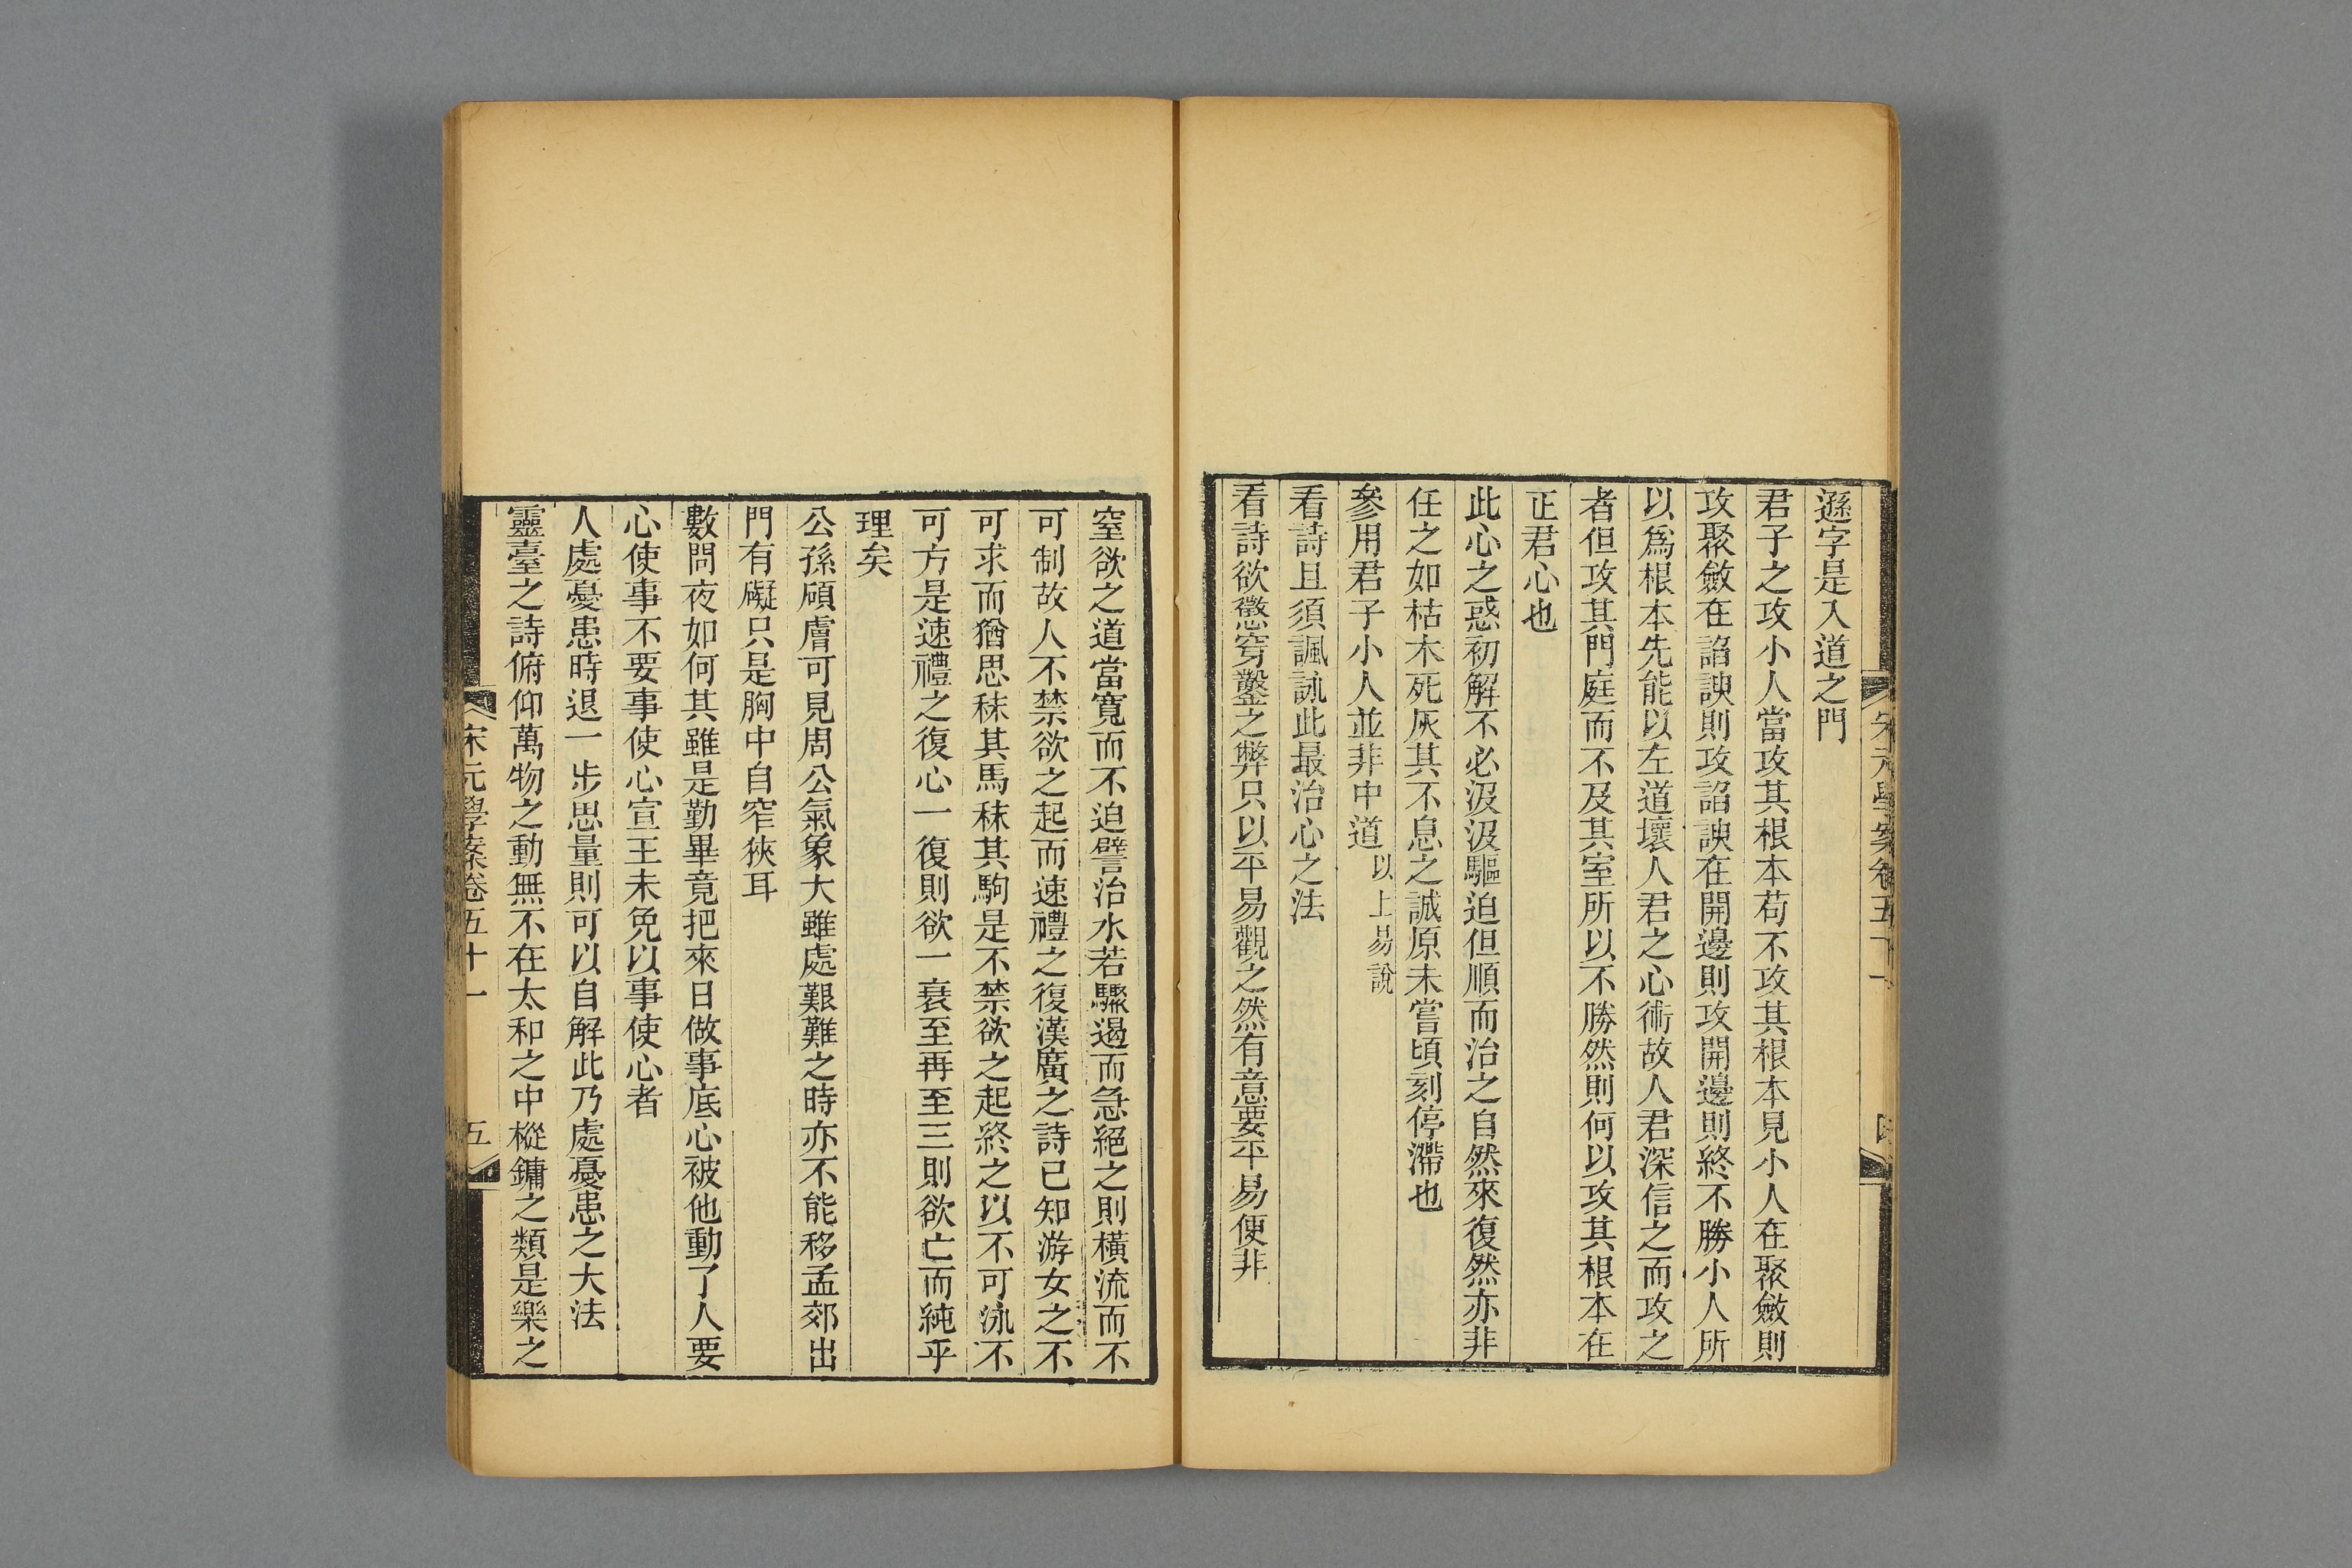 遜字是入道之門
君子之攻小人當攻其根本苟不攻其根本見小人在聚斂則
攻聚斂在諂諛則攻諂諛在開邊則攻開邊則終不勝小人所
以爲根本先能以左道壞人君之心術故人君深信之而攻之
者但攻其門庭而不及其室所以不勝然則何以攻其根本在
正君心也
此心之惑初解不必汲汲驅迫但順而治之自然來復然亦非
任之如枯木死灰其不息之誠原未嘗頃刻停滯也
參用君子小人並非中道以上易說
看詩且須諷詠此最治心之法
看詩欲懲穿鑿之弊只以平易觀之然有意要平易便非
窒欲之道當寬而不迫譬治水若驟遏而急絕之則橫流而不
可制故人不禁欲之起而速禮之復漢廣之詩已知游女之不
可求而猶思秣其馬秣其駒是不禁欲之起終之以不可泳不
可方是速禮之復心一復則欲一衰至再至三則欲亡而純乎
理矣
公孫碩膚可見周公氣象大雖處艱難之時亦不能移孟郊出
門有礙只是胸中自窄狹耳
數問夜如何其雖是勤畢竟把來日做事底心被他動了人要
心使事不要事使心宣王未免以事使心者
人處憂患時退一步思量則可以自解此乃處憂患之大法
靈臺之詩俯仰萬物之動無不在太和之中樅鏞之類是樂之
宋元學案卷五十一
五